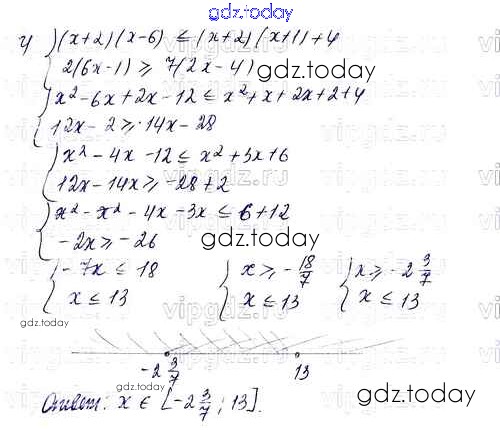 gdz.today
4) { (x+2)(x-6) ≤ (x+2)(x+1)+4
2(6x-1) ≥ 7(2x-4)
gdz.today
{ x²-6x+2x-12 ≤ x²+x+2x+2+4
12x-2 ≥ 14x-28
{ x²-4x-12 ≤ x²+3x+6
12x-14x ≥ -28+2
{ x²-x²-4x-3x ≤ 6+12
-2x ≥ -26
gdz.today
{ -7x ≤ 18 { x ≥ -18/7 { x ≥ -2 3/7
x ≤ 13 x ≤ 13 x ≤ 13
gdz.today
-2 3/7 13
gdz.today gdz.today
Ответ: x ∈ [-2 3/7; 13].